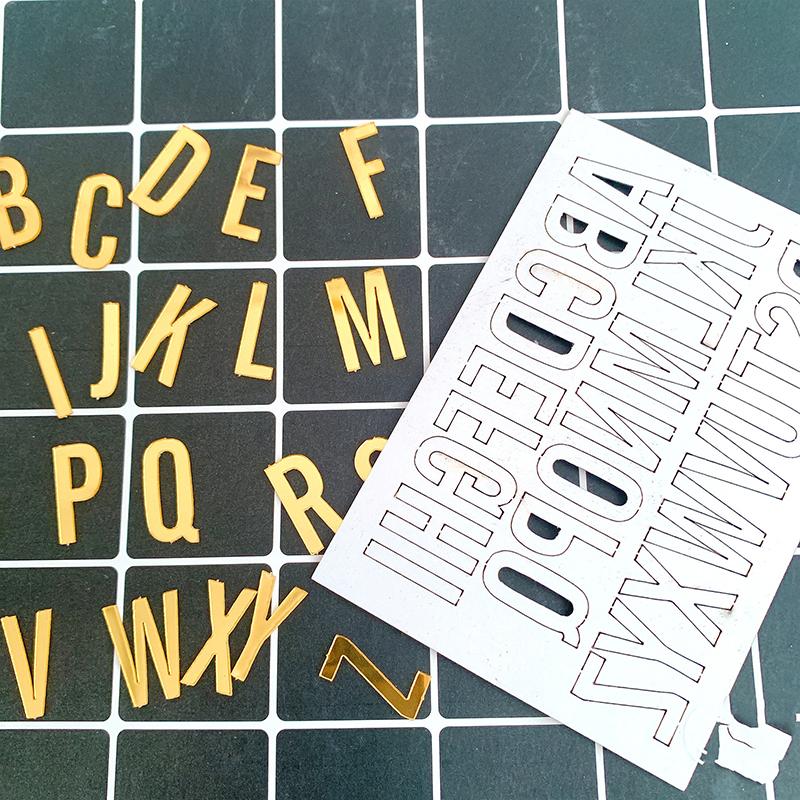 B C D E F
I J K L M
P Q R S
V W X Y Z
ABCDEFGHI
JKLMNOPQ
RSTUVWXYZ